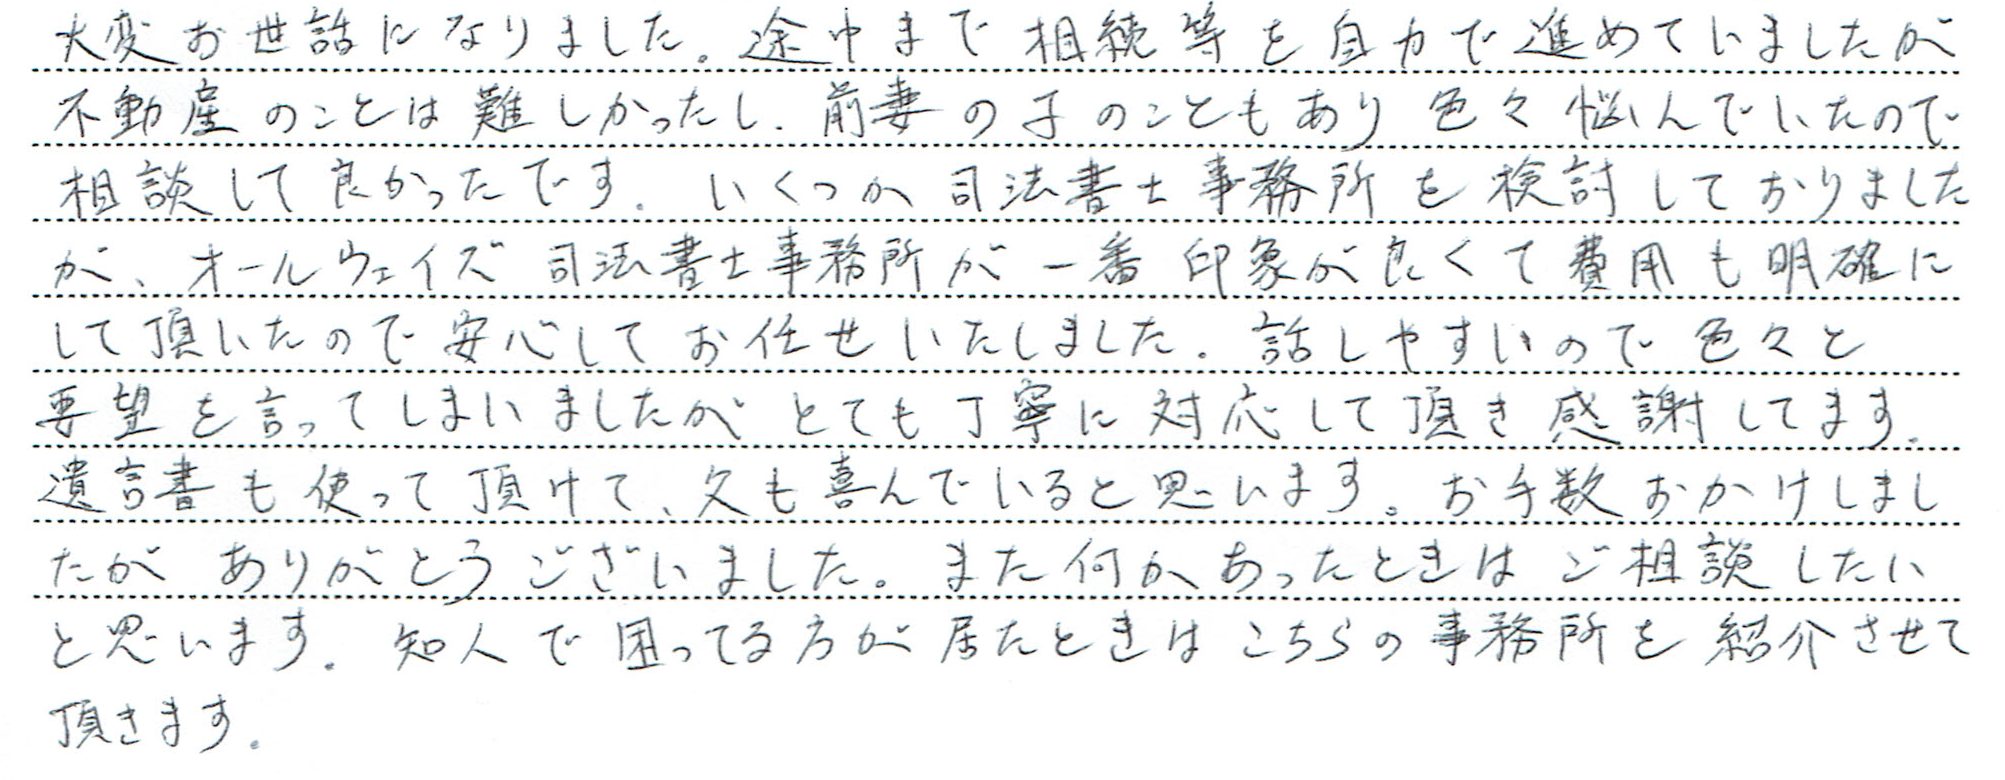 大変お世話になりました。途中まで相続等を自力で進めていましたが
不動産のことは難しかったし、前妻の子のこともあり色々悩んでいたので
相談して良かったです。いくつか司法書士事務所を検討しておりました
が、オールウェイズ司法書士事務所が一番印象が良くて費用も明確に
して頂いたので安心してお任せいたしました。話しやすいので色々と
要望を言ってしまいましたがとても丁寧に対応して頂き感謝してます。
遺言書も使って頂けて、父も喜んでいると思います。お手数おかけしまし
たがありがとうございました。また何かあったときはご相談したい
と思います。知人で困ってる方が居たときはこちらの事務所を紹介させて
頂きます。